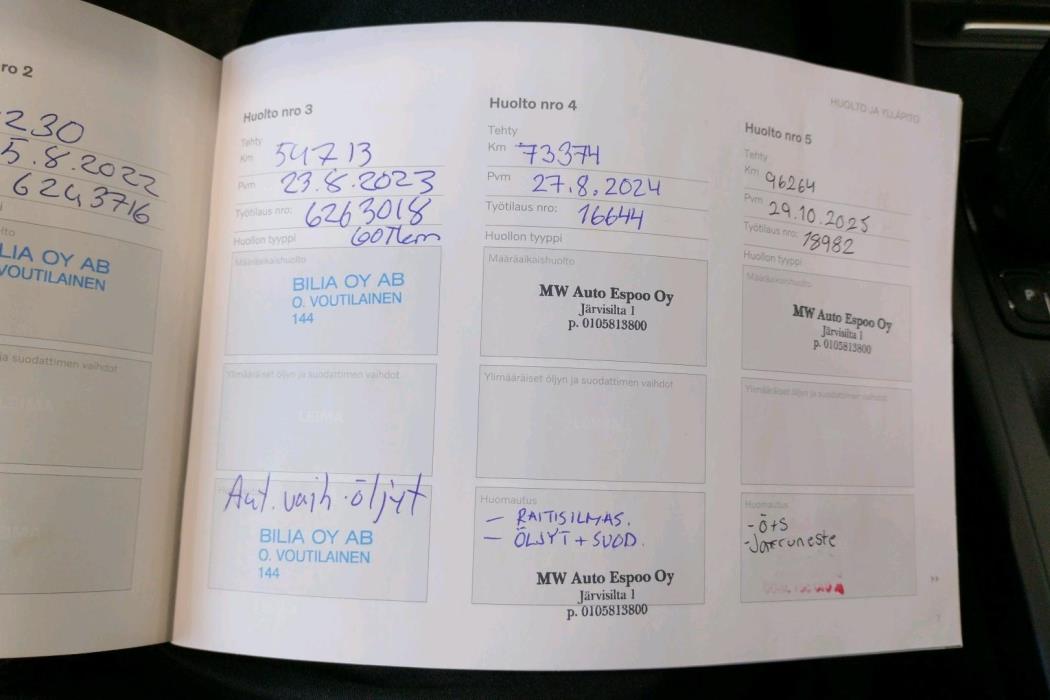 ro 2
230
5.8.2022
6243716
LIA OY AB
VOUTILAINEN
ja suodattimen vaihdot
LEIMA
Huolto nro 3
Tehty
Km 54713
Pvm 23.8.2023
Työtilaus nro: 6263018
Huollon tyyppi 60Tkm
Määräaikaishuolto
BILIA OY AB
O. VOUTILAINEN
144
Ylimääräiset öljyn ja suodattimen vaihdot
LEIMA
Aut. vaih. öljyt
BILIA OY AB
O. VOUTILAINEN
144
Huolto nro 4
Tehty
Km 73374
Pvm 27.8.2024
Työtilaus nro: 16644
Huollon tyyppi
Määräaikaishuolto
MW Auto Espoo Oy
Järvisilta 1
p. 0105813800
Ylimääräiset öljyn ja suodattimen vaihdot
Huomautus
- RAITISILMAS.
- ÖLJYT + SUOD.
MW Auto Espoo Oy
Järvisilta 1
p. 0105813800
HUOLTO JA YLLÄPITO
Huolto nro 5
Tehty
Km 96264
Pvm 29.10.2025
Työtilaus nro: 18982
Huollon tyyppi
Määräaikaishuolto
MW Auto Espoo Oy
Järvisilta 1
p. 0105813800
Ylimääräiset öljyn ja suodattimen vaihdot
Huomautus
- Ö+S
- Jarruneste
››
P